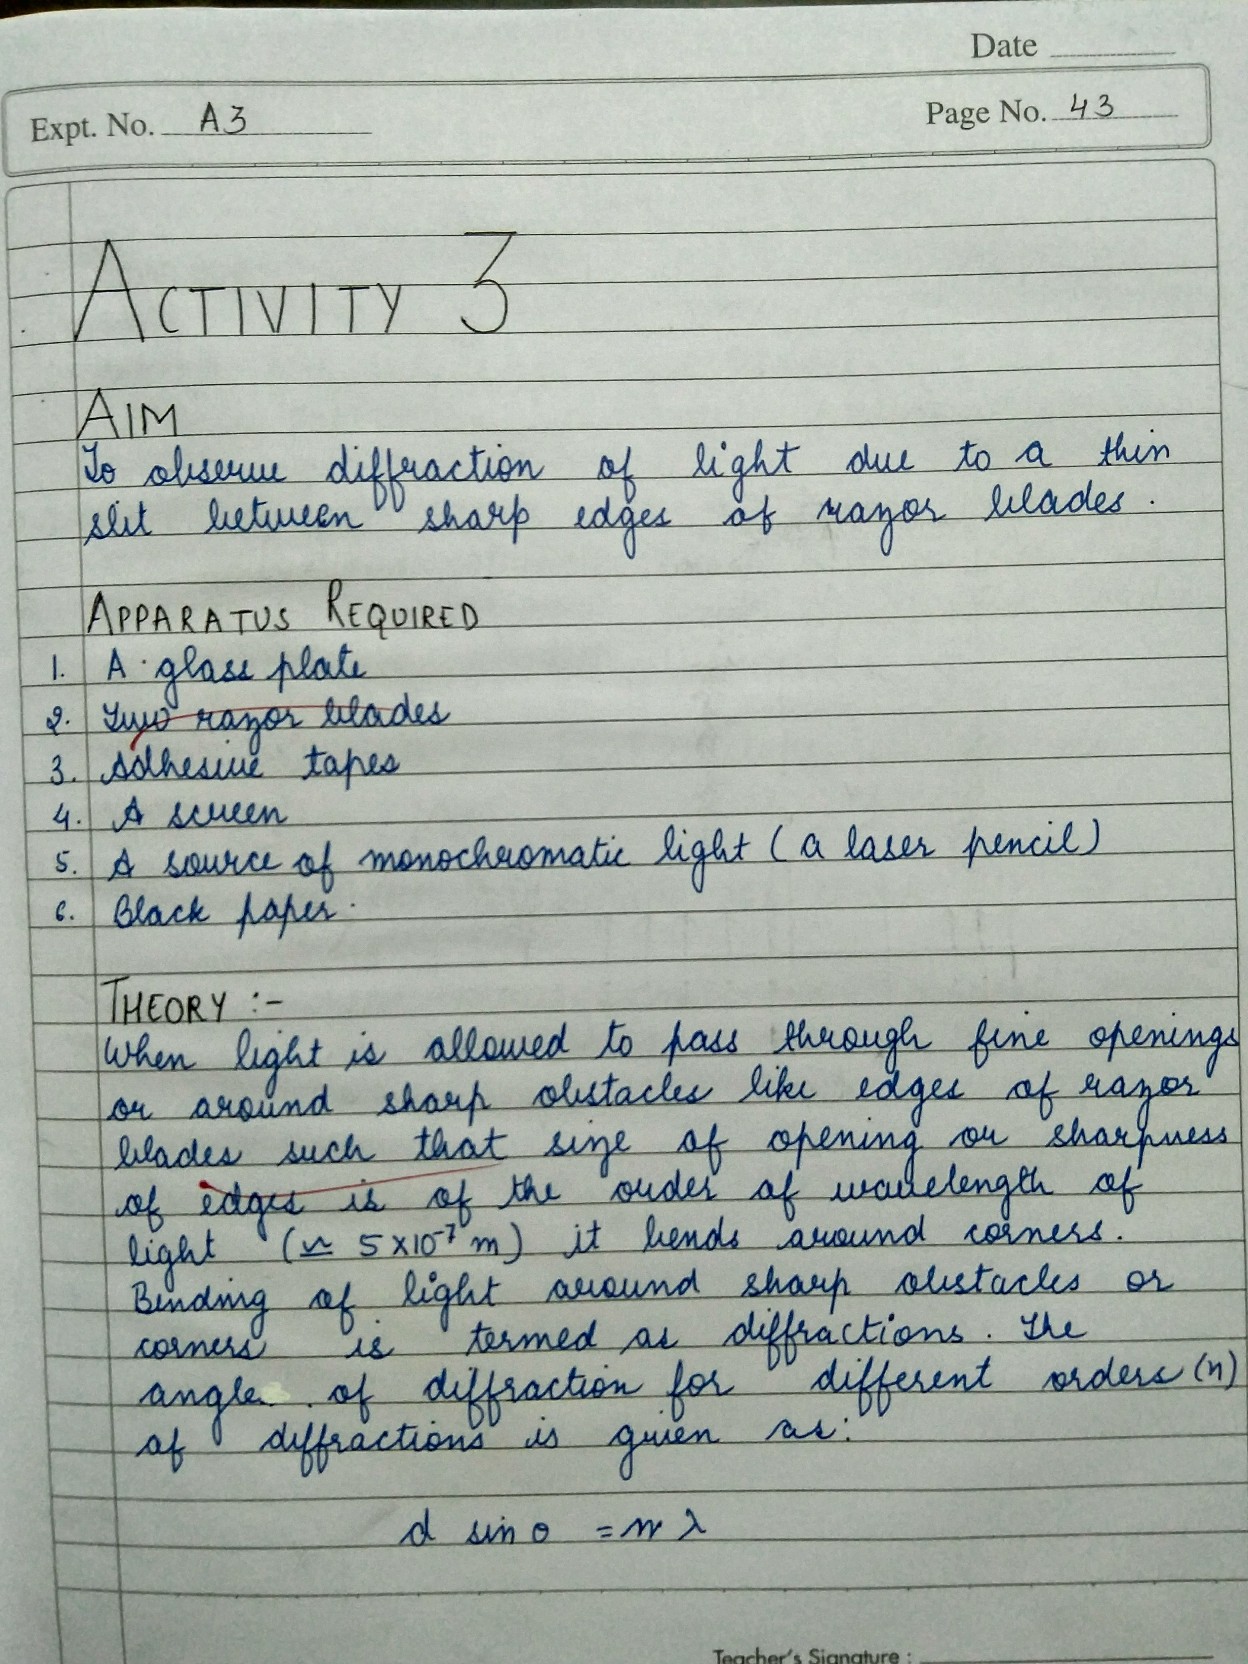 Date
Expt. No. A3
Page No. 43
ACTIVITY 3
AIM
To observe diffraction of light due to a thin
slit between sharp edges of razor blades.
APPARATUS REQUIRED
1. A glass plate
2. Two razor blades
3. Adhesive tapes
4. A screen
5. A source of monochromatic light (a laser pencil)
6. Black paper.
THEORY :-
When light is allowed to pass through fine openings
or around sharp obstacles like edges of razor
blades such that size of opening or sharpness
of edges is of the order of wavelength of
light (≃ 5×10⁻⁷ m) it bends around corners.
Bending of light around sharp obstacles or
corners is termed as diffractions. The
angle of diffraction for different orders (n)
of diffractions is given as:
d sin θ = n λ
Teacher's Signature :